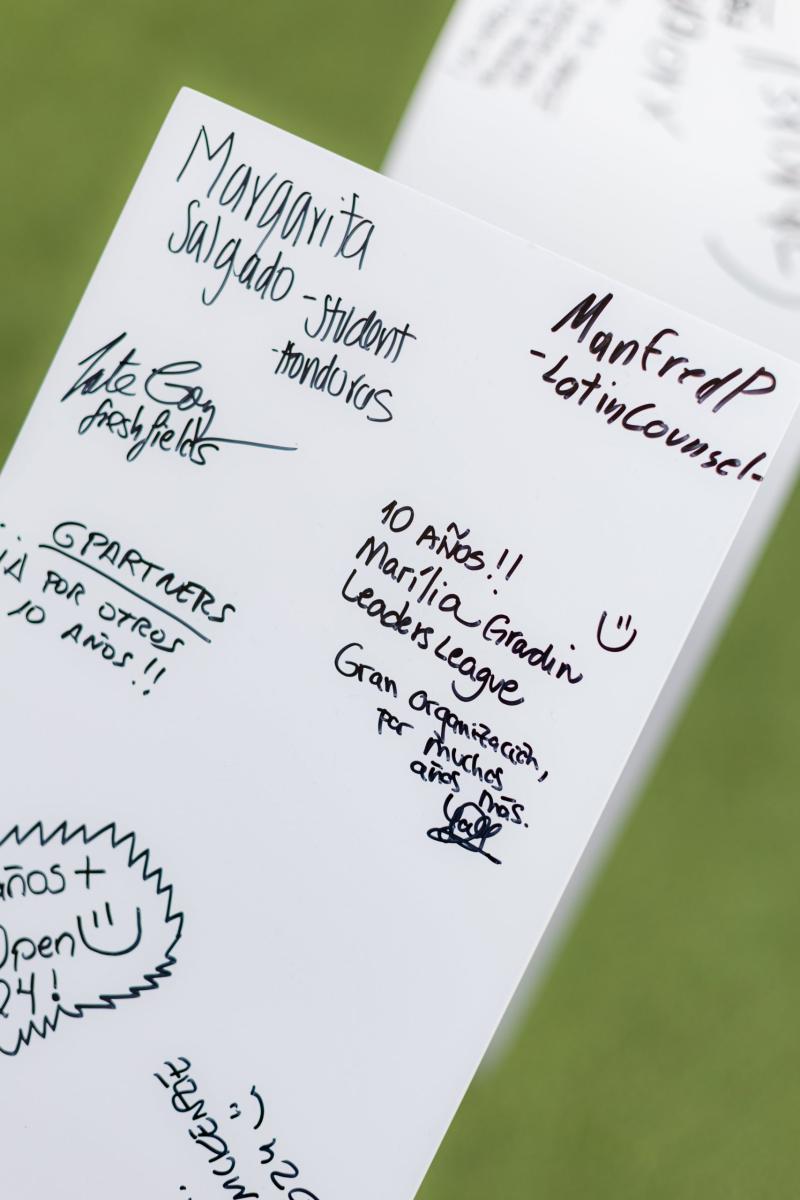 Margarita
Salgado - Student
- Honduras
ManfredP
- LatinCounsel -
freshfields
GPARTNERS
¡A POR OTROS
10 AÑOS!!
10 AÑOS!!
Marília Gradin
Leaders League
Gran organización,
por muchos
años más.
años +
Open
24!
MCKENZIE
24